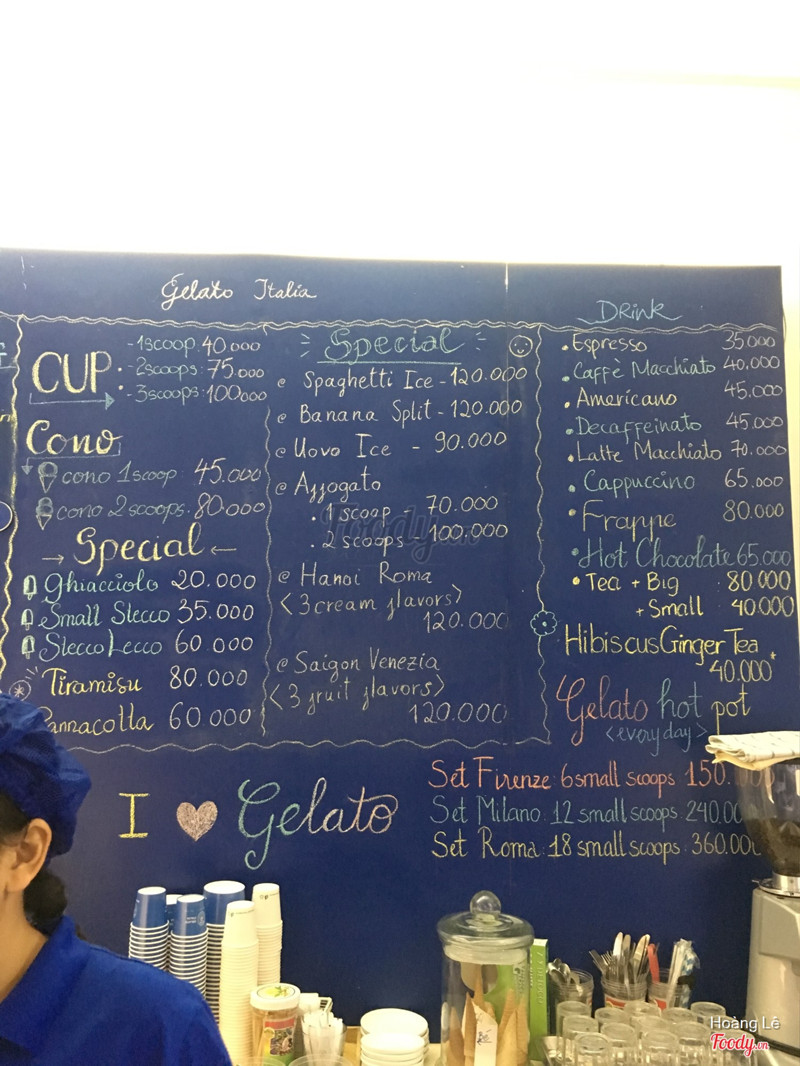 Gelato Italia
CUP
- 1scoop: 40000
- 2scoops: 75.000
- 3scoops: 100000
Cono
cono 1scoop: 45.000
cono 2scoops: 80.000
Special
Ghiacciolo 20.000
Small Stecco 35.000
Stecco Lecco 60.000
Tiramisu 80.000
Pannacotta 60000
Special
@ Spaghetti Ice - 120.000
@ Banana Split - 120.000
@ Uovo Ice - 90.000
@ Affogato
. 1 scoop 70.000
. 2 scoops - 100.000
@ Hanoi Roma
<3 cream flavors>
120.000
@ Saigon Venezia
<3 fruit flavors>
120.000
DRink
• Espresso 35000
• Caffè Macchiato 40.000
• Americano 45.000
• Decaffeinato 45.000
• Latte Macchiato 70.000
• Cappuccino 65.000
• Frappe 80.000
• Hot Chocolate 65.000
• Tea + Big 80000
+ Small 40.000
Hibiscus Ginger Tea
40.000
Gelato hot pot
<every day>
Set Firenze: 6 small scoops 150.
Set Milano: 12 small scoops: 240.00
Set Roma: 18 small scoops: 360.000
I ♥ Gelato
Foody.vn
Hoàng Lê
Foody.vn